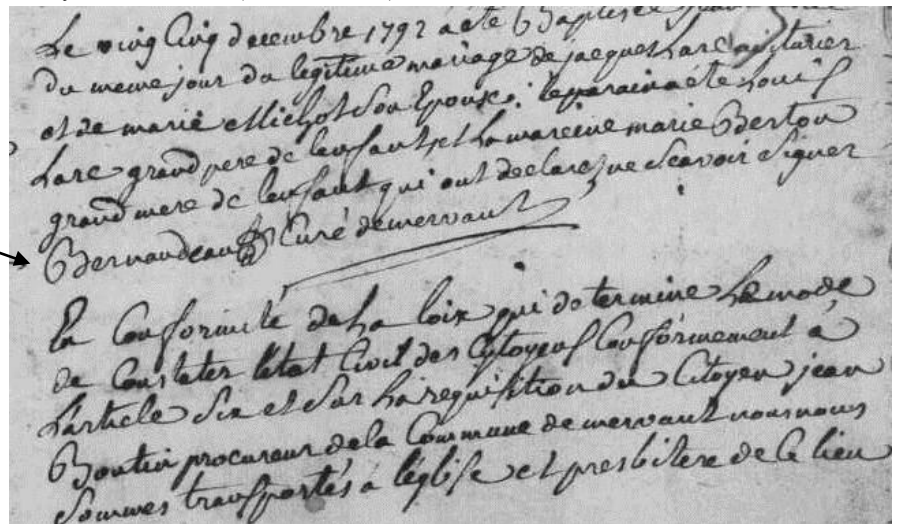 Le vingt Cinq decembre 1792 a été Baptisée
du meme jour du legitime mariage de jacques Larc
et de marie Michot Son Epouse; le parain a été Louis
Larc grand pere de lenfant, et La mareine marie Berton
grand mere de lenfant qui ont declarez ne Scavoir Signer
Bernaudeau Curé demervant
En Conformité de La loix qui determine Le mode
de Constater l'état Civil des Cytoyens Conformement à
L'article Six et Sur La requisition du Citoyen jean
Boutin procureur dela Commune de mervant nous nous
Sommes transportés a l'église et presbitere de Ce lieu